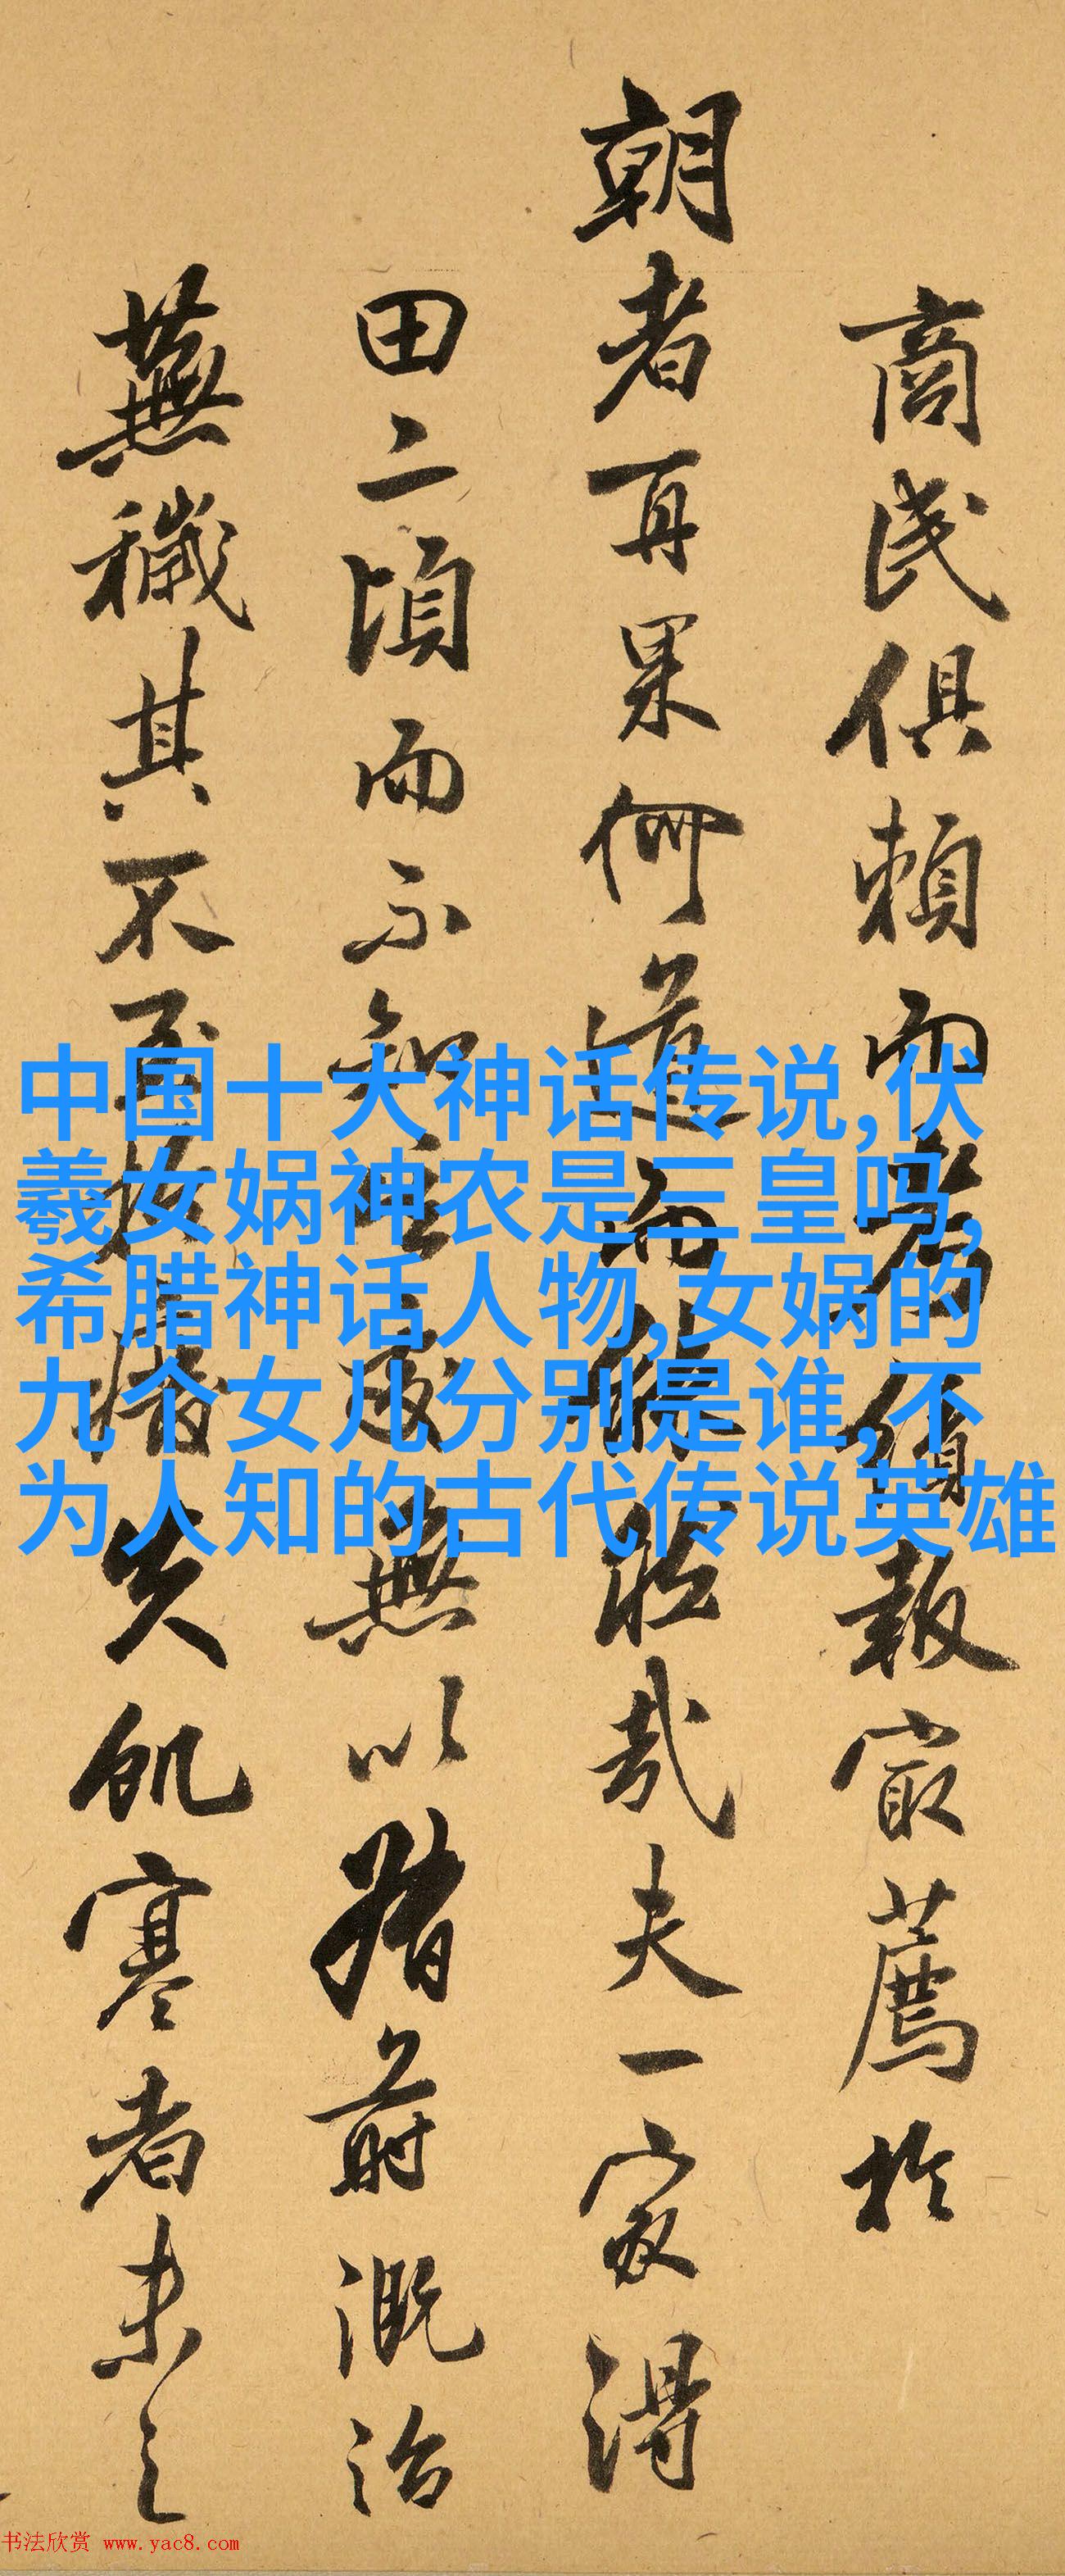 商民俱頼而
報最薦於
朝者再果何道
哉夫一家得
田二頃而不知
無以猪前溉治
蕪穢其不至
失飢寒者未之
中国十大神话传说,伏
羲女娲神农是三皇吗,
希腊神话人物,女娲的
九个女儿分别是谁,不
为人知的古代传说英雄
书法欣赏 www.yac8.com